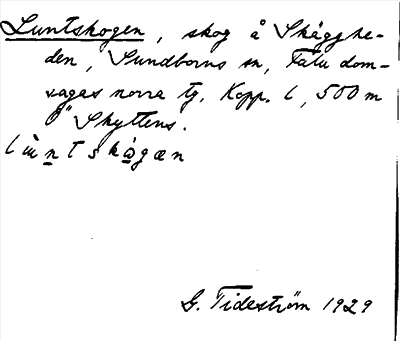 Luntskogen, skog å Skågghe-
den, Sundborns sn, Falu dom-
sagas norra tg. Kopp. l, 500 m
Ö Skyttens.
G. Tideström 1929